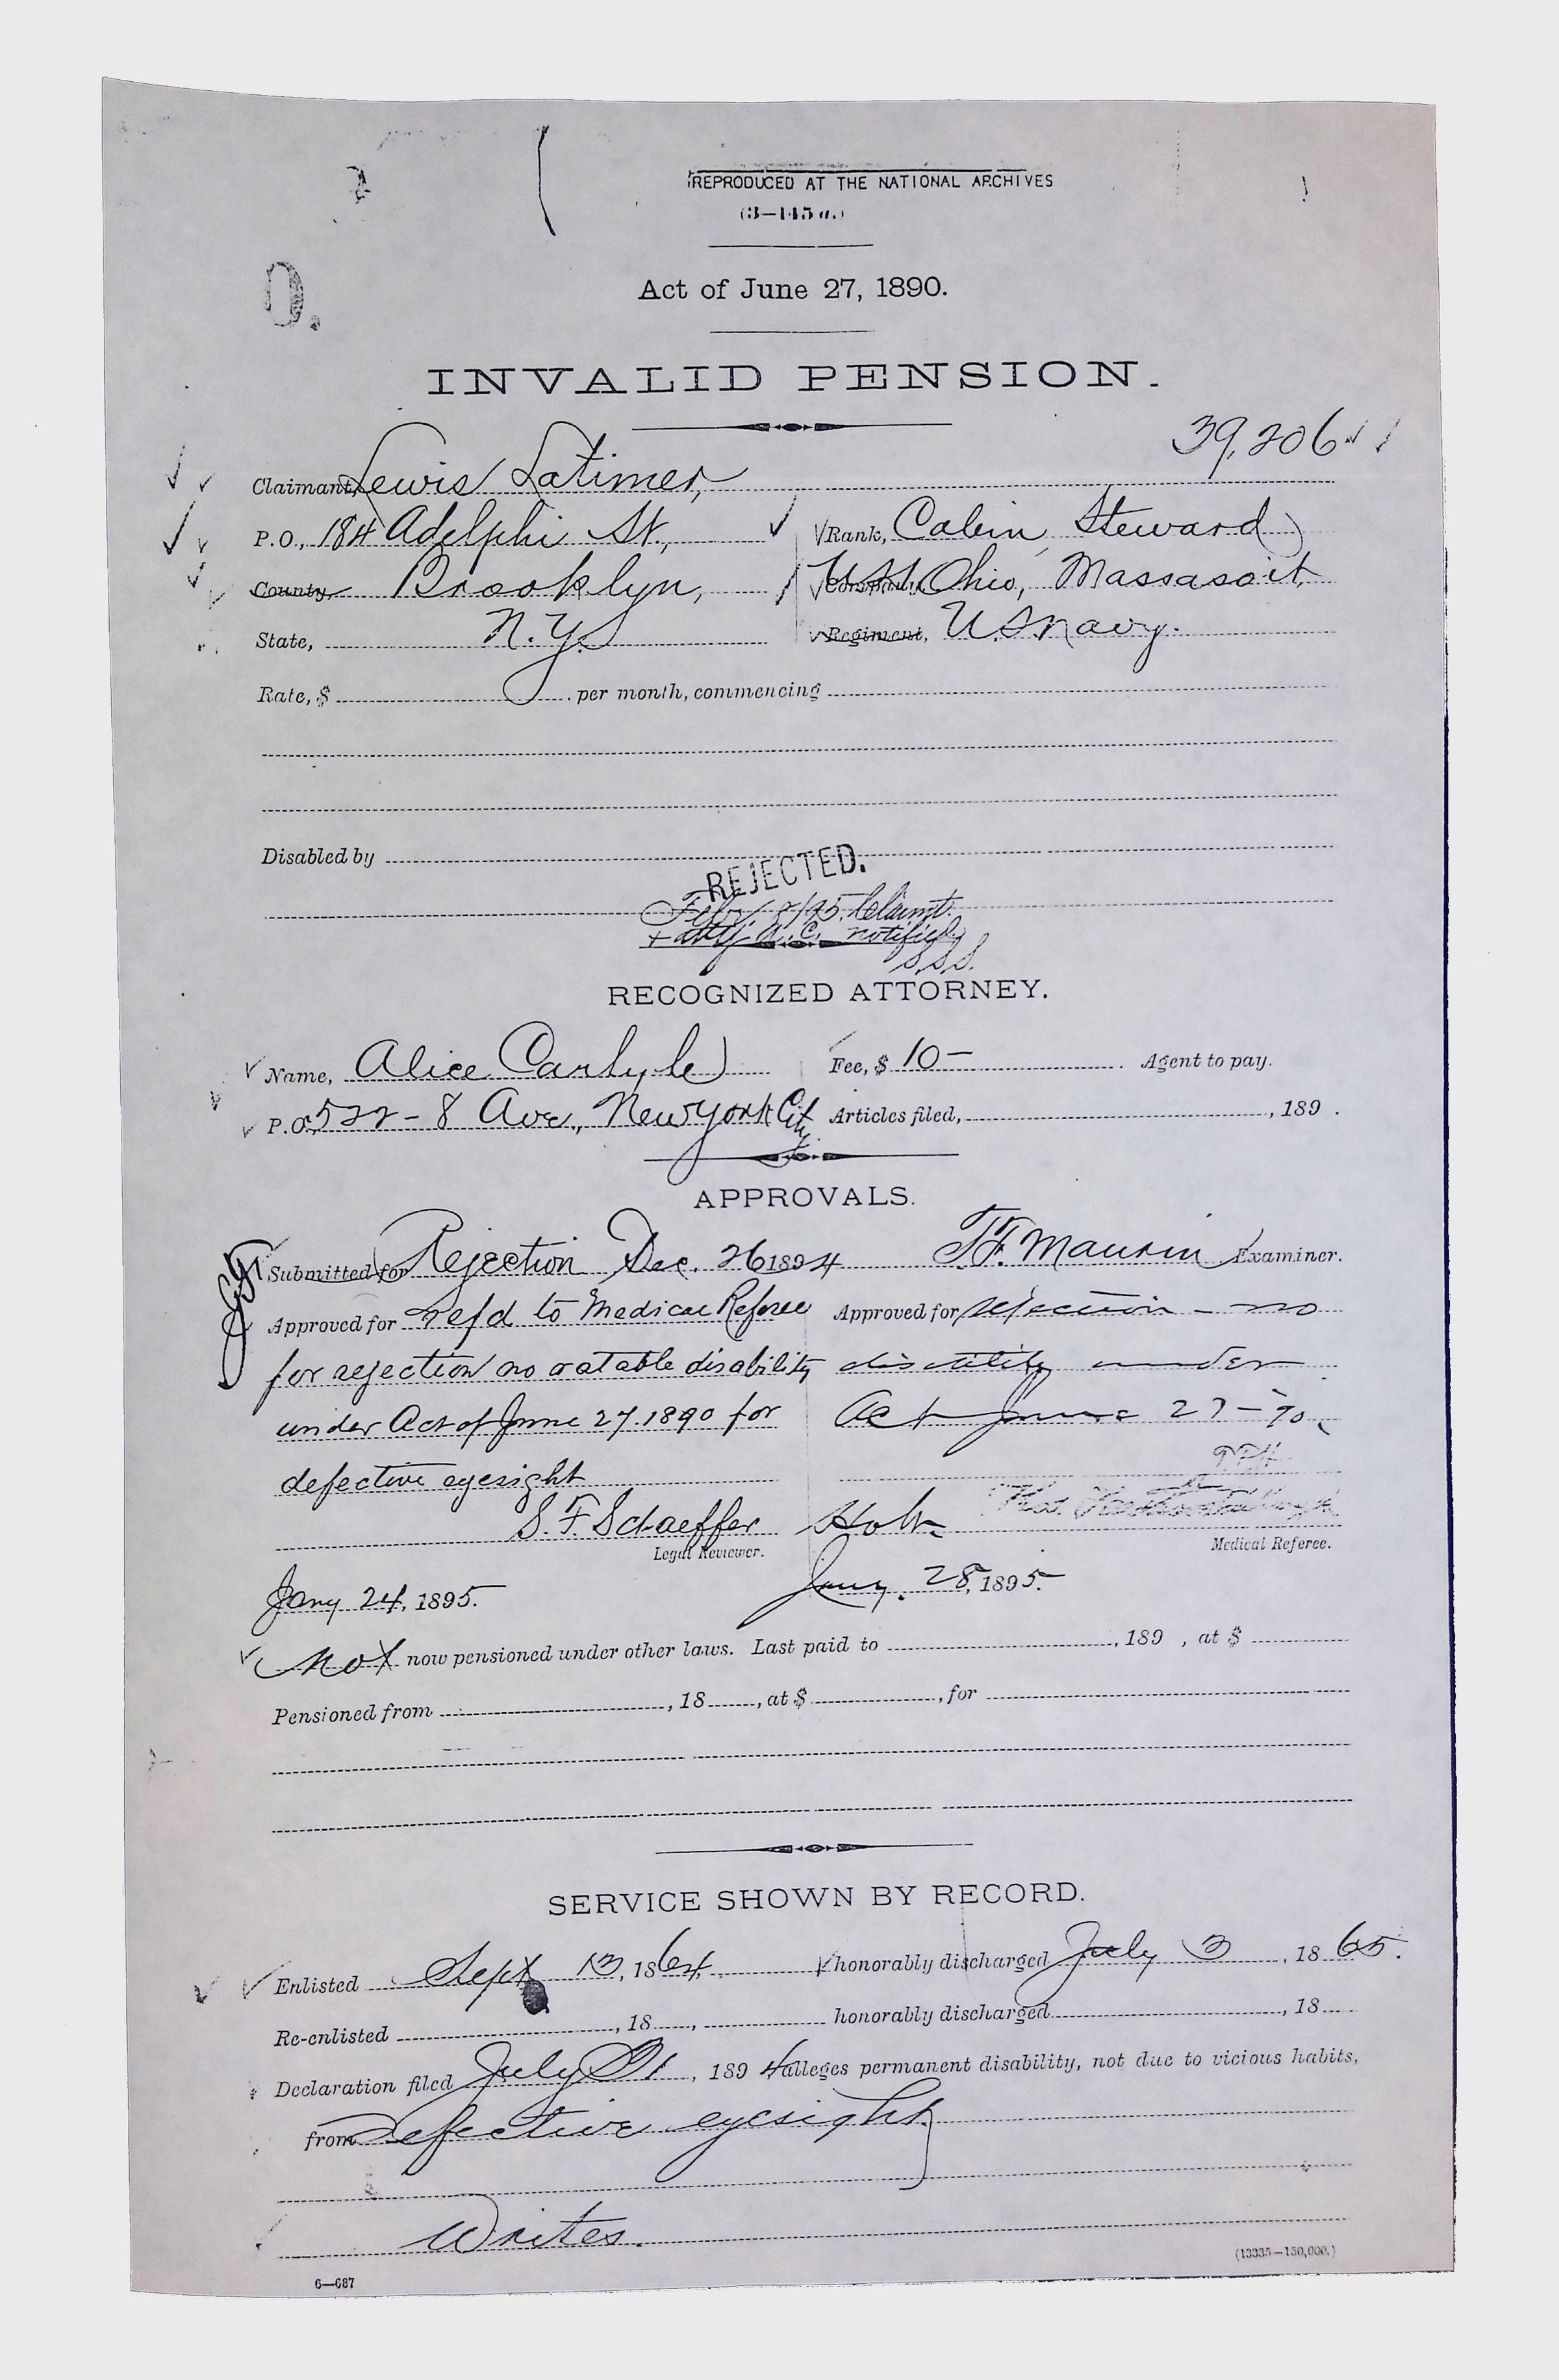 REPRODUCED AT THE NATIONAL ARCHIVES
(3—145 a.)
Act of June 27, 1890.
INVALID PENSION.
39,206
Claimant, Lewis Latimer,
P.O., 184 Adelphi St., Rank, Cabin Steward
County, Brooklyn, Company, USS Ohio, Massasoit
State, N.Y. Regiment, U.S. Navy.
Rate, $ per month, commencing
Disabled by
REJECTED.
Feby. 8/95. Claimt.
+ atty. A. C. notified
S.S.S.
RECOGNIZED ATTORNEY.
Name, Alice Carlyle Fee, $ 10— Agent to pay.
P.O. 522 - 8 Ave., New York City Articles filed, , 189 .
APPROVALS.
Submitted for Rejection Dec. 26 1894 T.F. Maurin Examiner.
Approved for refd to Medical Referee Approved for rejection — no
for rejection no ratable disability disability under
under Act of June 27. 1890 for Act June 27–90
defective eyesight
S. F. Schaeffer Holt
Legal Reviewer. Medical Referee.
Jany 24, 1895. Jany. 28, 1895.
Not now pensioned under other laws. Last paid to , 189 , at $
Pensioned from , 18 , at $ , for
SERVICE SHOWN BY RECORD.
Enlisted Sept 13, 1864, honorably discharged July 3, 1865.
Re-enlisted , 18 , honorably discharged , 18
Declaration filed July 21, 1894 alleges permanent disability, not due to vicious habits,
from Defective eyesight
Writes.
6—687
(13335—150,000.)